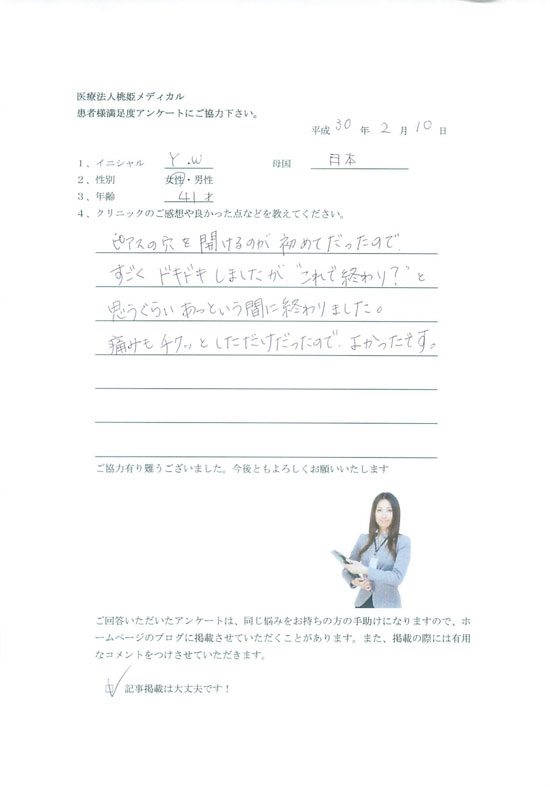 医療法人桃姫メディカル
患者様満足度アンケートにご協力下さい。
平成 30 年 2 月 10 日
1、イニシャル Y.W 母国 日本
2、性別 女性・男性
3、年齢 41才
4、クリニックのご感想や良かった点などを教えてください。
ピアスの穴を開けるのが初めてだったので、
すごくドキドキしましたが、"これで終わり?"と
思うぐらいあっという間に終わりました。
痛みもチクッとしただけだったので、よかったです。
ご協力有り難うございました。今後ともよろしくお願いいたします
ご回答いただいたアンケートは、同じ悩みをお持ちの方の手助けになりますので、ホ
ームページのブログに掲載させていただくことがあります。また、掲載の際には有用
なコメントをつけさせていただきます。
記事掲載は大丈夫です！